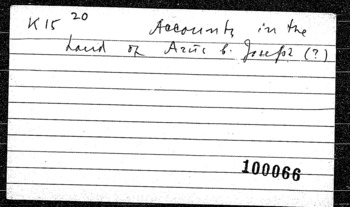 K 15 20 Accounts in the
hand of Arūs b. Joseph (?)
100066